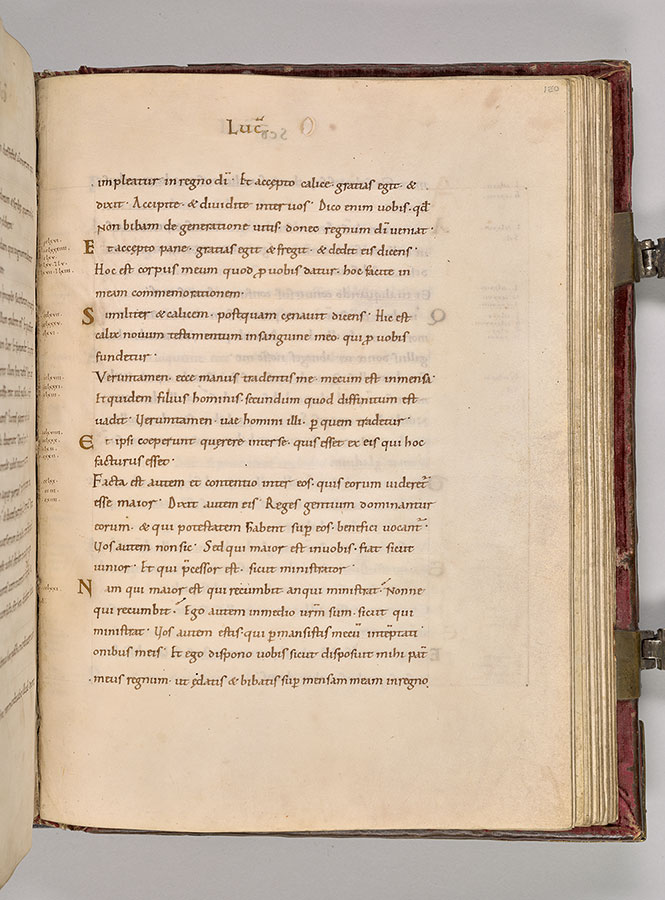 180
Luc̄
impleatur in regno dī· Et accepto calice· gratias egit· &
dixit· Accipite· & dividite inter vos· Dico enim vobis· qđ
Non bibam de generatione vitis· donec regnum dī veniat·
Et accepto pane· gratias egit & fregit· & dedit eis dicens·
Hoc est corpus meum quod ꝓ vobis datur· hoc facite in
meam commemorationem·
Similiter & calicem· postquam cenavit dicens· Hic est
calix novum testamentum in sanguine meo· qui ꝓ vobis
fundetur·
Veruntamen· ecce manus tradentis me· mecum est in mensa·
Et quidem filius hominis· secundum quod diffinitum est
vadit· Veruntamen· vae homini illi· ꝑ quem tradetur·
Et ipsi coeperunt querere inter se· quis esset ex eis qui hoc
facturus esset·
Facta est autem et contentio inter eos· quis eorum videret᷑
esse maior· Dixit autem eis· Reges gentium dominantur
eorum· & qui potestatem habent sup̄ eos· benefici vocant᷑·
Vos autem non sic· Sed qui maior est in vobis· fiat sicut
iunior· Et qui p̄cessor est· sicut ministrator·
Nam qui maior est qui recumbit an qui ministrat· Nonne
qui recumbit· Ego autem in medio vr̄m sum· sicut qui
ministrat· Vos autem estis· qui ꝑmansistis mecū in tēptati
onibus meis· Et ego dispono vobis sicut disposuit mihi pat᷑
meus regnum· ut ędatis & bibatis sup̄ mensam meam in regno